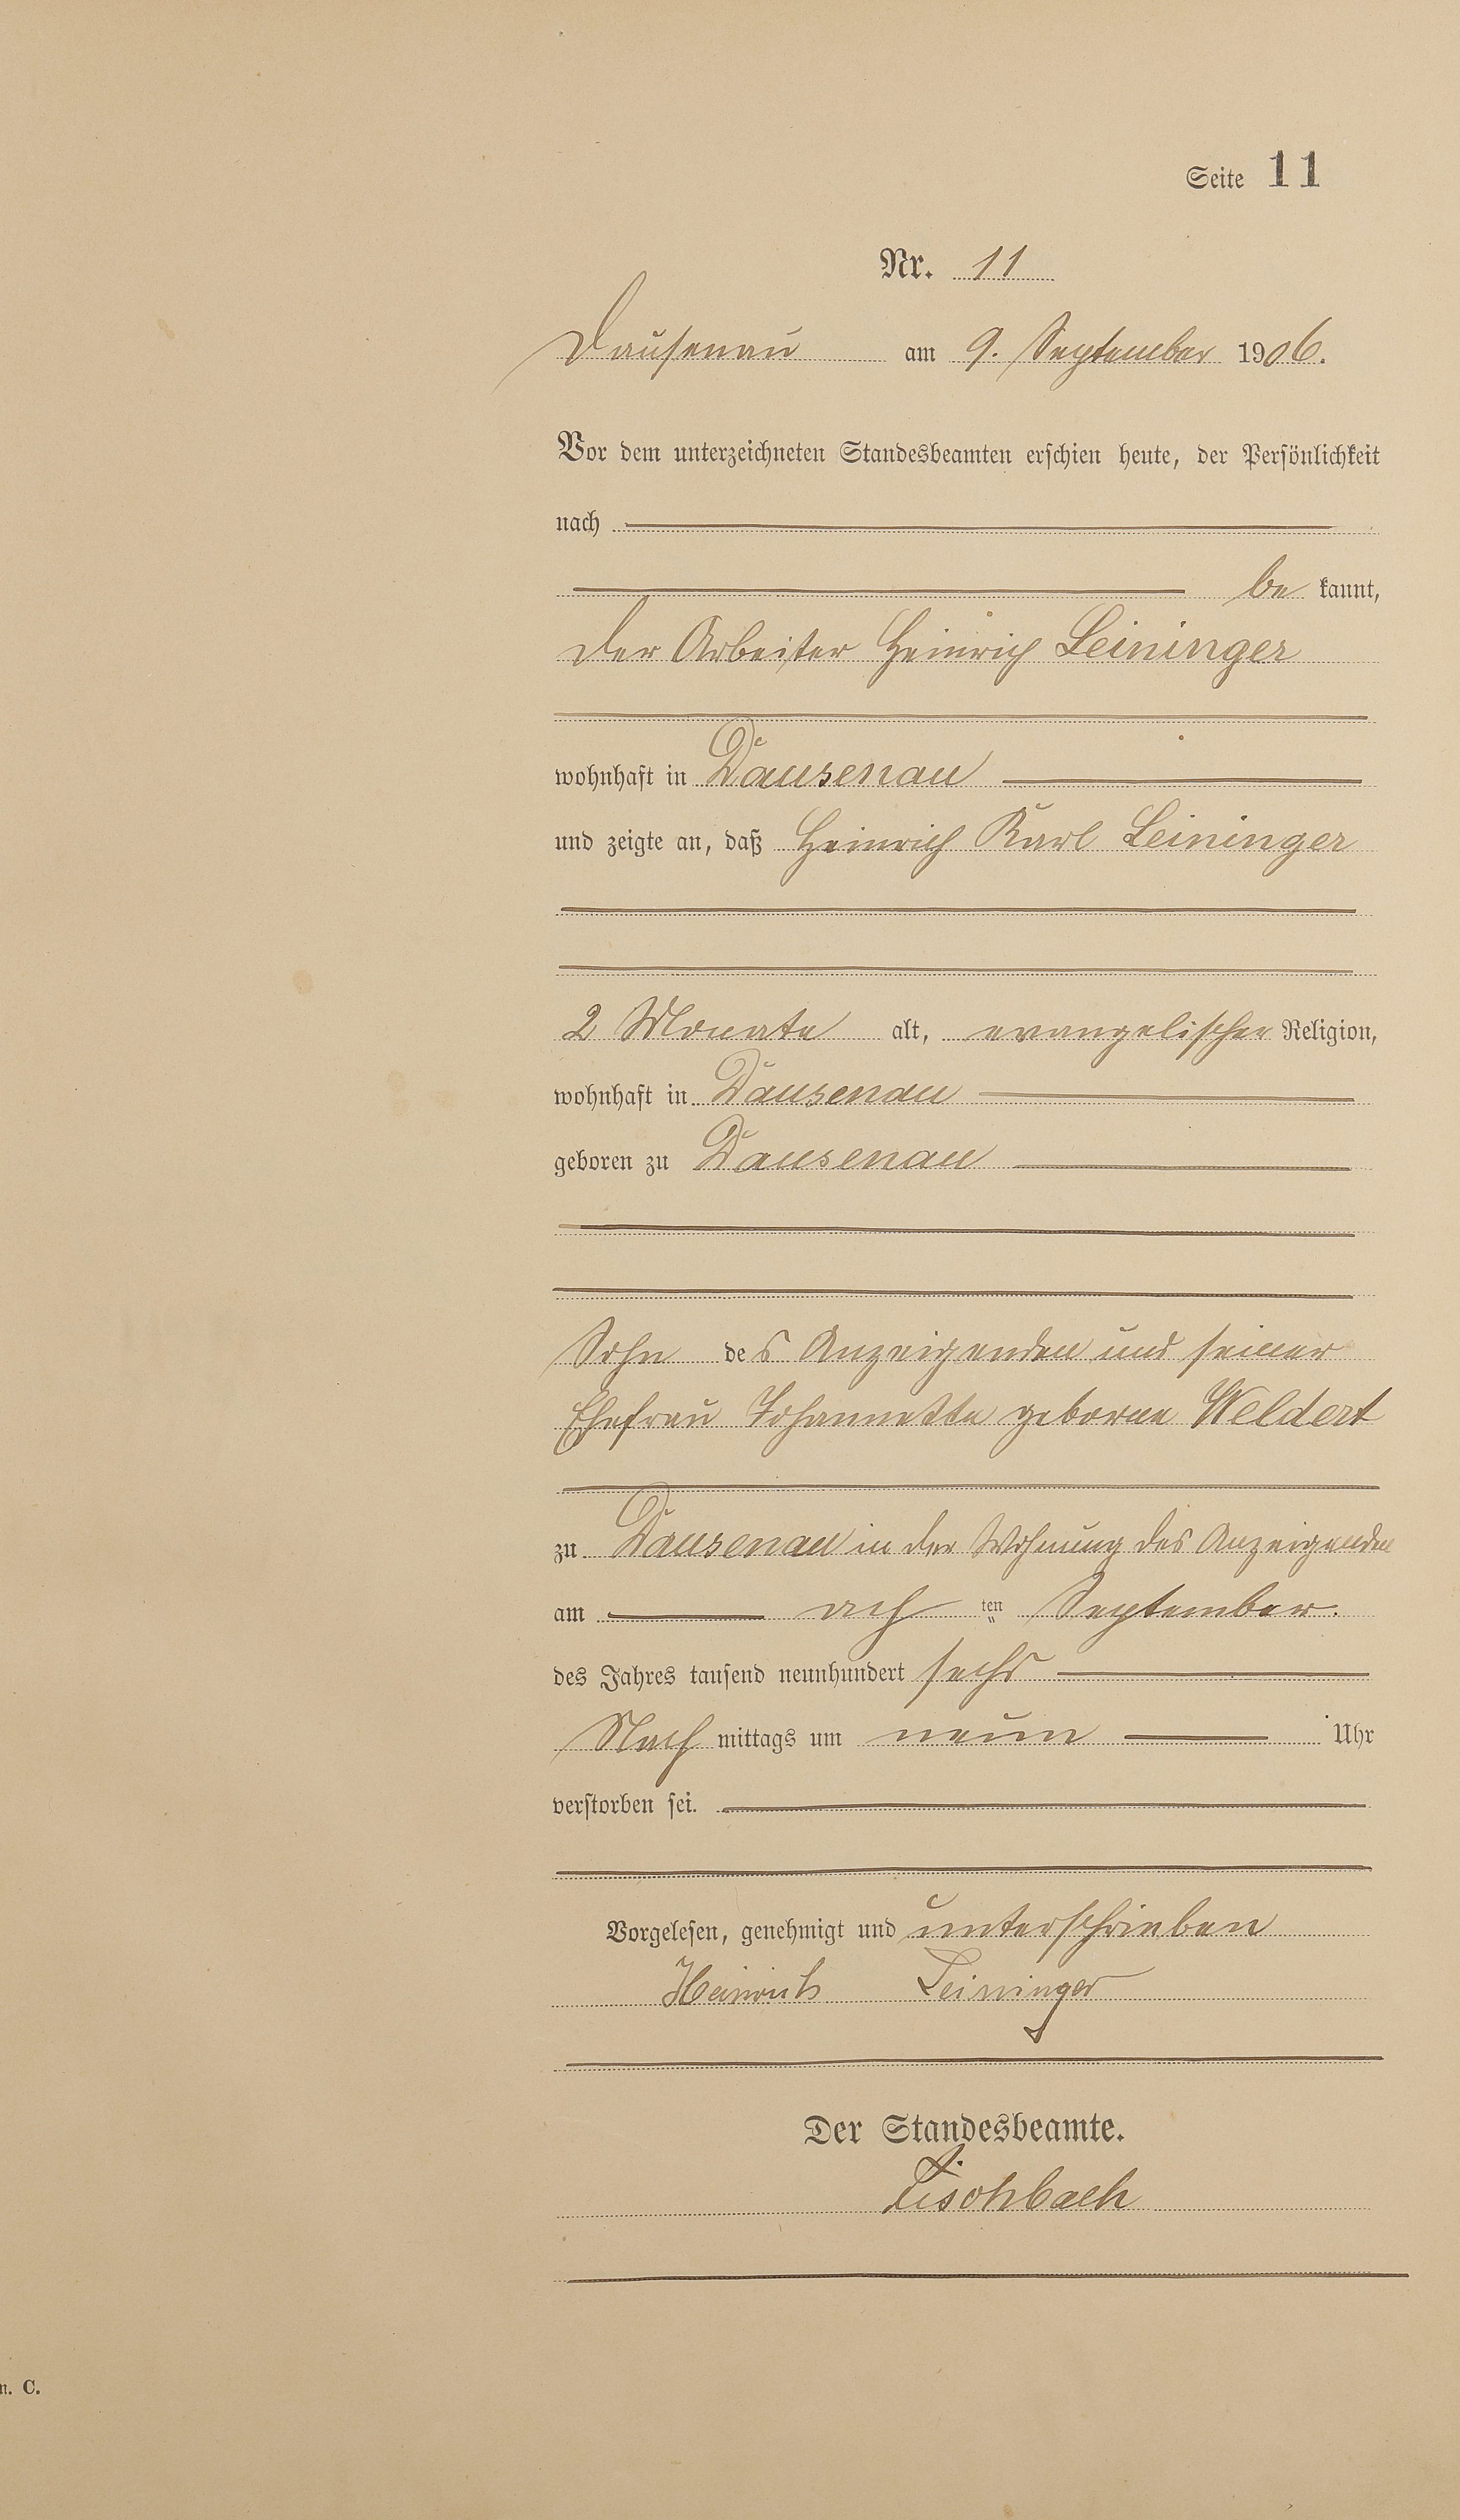 Seite 11
Nr. 11
Dausenau am 9. September 1906.
Vor dem unterzeichneten Standesbeamten erschien heute, der Persönlichkeit
nach
be kannt,
der Arbeiter Heinrich Leininger
wohnhaft in Dausenau
und zeigte an, daß Heinrich Karl Leininger
2 Monate alt, evangelischer Religion,
wohnhaft in Dausenau
geboren zu Dausenau
Sohn des Anzeigenden und seiner
Ehefrau Johannette geborne Weldert
zu Dausenau in der Wohnung des Anzeigenden
am ach ten September.
des Jahres tausend neunhundert sechs
Nach mittags um neun Uhr
verstorben sei.
Vorgelesen, genehmigt und unterschrieben
Heinrich Leininger
Der Standesbeamte.
Fischbach
n. C.